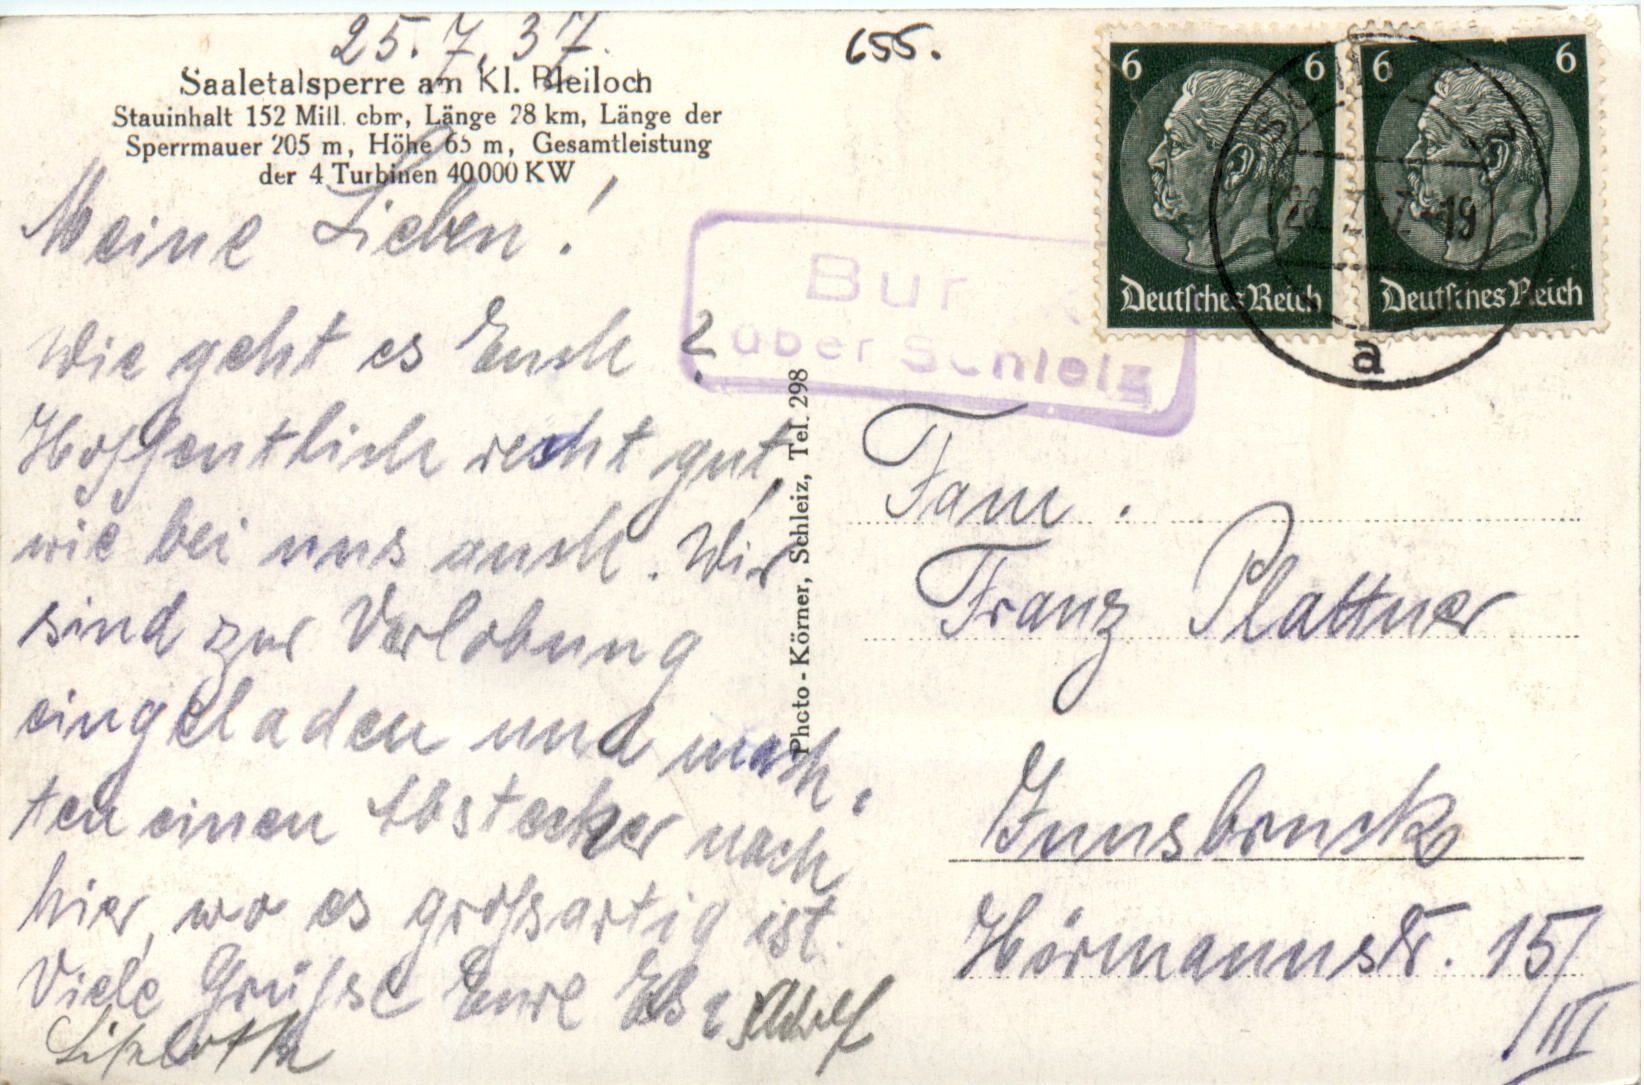 25.7.37.
655.
Saaletalsperre am Kl. Bleiloch
Stauinhalt 152 Mill. cbm, Länge 28 km, Länge der
Sperrmauer 205 m, Höhe 65 m, Gesamtleistung
der 4 Turbinen 40000 KW
Meine Lieben!
Wie geht es Euch?
Hoffentlich recht gut
wie bei uns auch. Wir
sind zur Verlobung
eingeladen und mach,
ten einen Abstecher nach
hier, wo es großartig ist.
Viele Grüße Eure Adolf
Photo-Körner, Schleiz, Tel. 298
6 6
Deutsches Reich
6 6
Deutsches Reich
19
a
Bur
über Schleiz
Fam.
Franz Plattner
Innsbruck
Hörmannstr. 15/
III